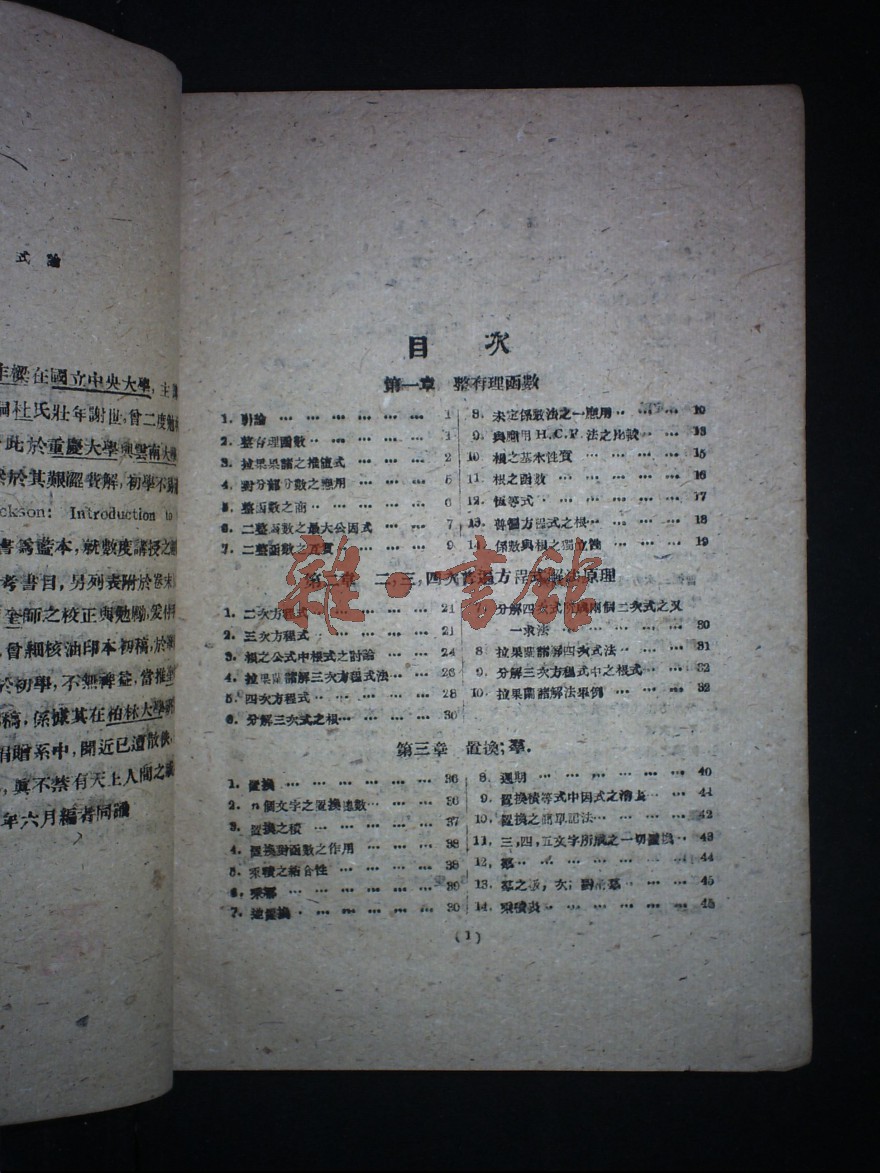 式論
在國立中央大學,主
杜氏壯年謝世,曾二度
此於重慶大學與雲南大
於其艱澀費解,初學不
ckson: Introduction to
書爲藍本,就數度講授之
考書目,另列表附於卷末
師之校正與勉勵,爰
曾細核油印本初稿,於
於初學,不無裨益,當推
稿,係據其在柏林大學
捐贈系中,聞近已遭散佚
,眞不禁有天上人間之
年六月編者同識
目 次
第一章 整有理函數
1. 引論 … … … … … … 1
2. 整有理函數 … … … … 1
3. 拉果蘭諸之推值式 … … … 2
4. 對分部分數之應用 … … … 5
5. 整函數之商 … … … … 6
6. 二整函數之最大公因式 … … 7
7. 二整函數之互質 … … … 9
8. 未定係數法之一應用 … … … 10
9. 與應用H.C.F.法之比較 … … 13
10. 根之基本性質 … … … 15
11. 根之函數 … … … … 16
12. 恆等式 … … … … … 17
13. 普通方程式之根 … … … 18
14. 係數與根之獨立性 … … … 19
第二章 二,三,四次普通方程式解法原理
1. 二次方程式 … … … … 21
2. 三次方程式 … … … … 21
3. 根之公式中根式之討論 … … 24
4. 拉果蘭諸解三次方程式法 … … 26
5. 四次方程式 … … … … 28
6. 分解三次式之根 … … … 30
7. 分解四次式爲兩個二次式之又
一求法 … … … … … 30
8. 拉果蘭諸解四次式法 … … … 31
9. 分解三次方程式中之根式 … … 32
10. 拉果蘭諸解法舉例 … … … 32
第三章 置換;羣.
1. 置換 … … … … … … 36
2. n個文字之置換總數 … … … 36
3. 置換之積 … … … … … 37
4. 置換對函數之作用 … … … 38
5. 乘積之結合性 … … … … 38
6. 乘冪 … … … … … … 39
7. 逆置換 … … … … … … 39
8. 週期 … … … … … … 40
9. 置換積等式中因式之消去 … … 41
10. 置換之簡單記法 … … … 42
11. 三,四,五文字所成之一切置換 … 43
12. 羣 … … … … … … 44
13. 羣之級,次;對稱羣 … … … 45
14. 乘積表 … … … … … 45
(1)
雜·書館